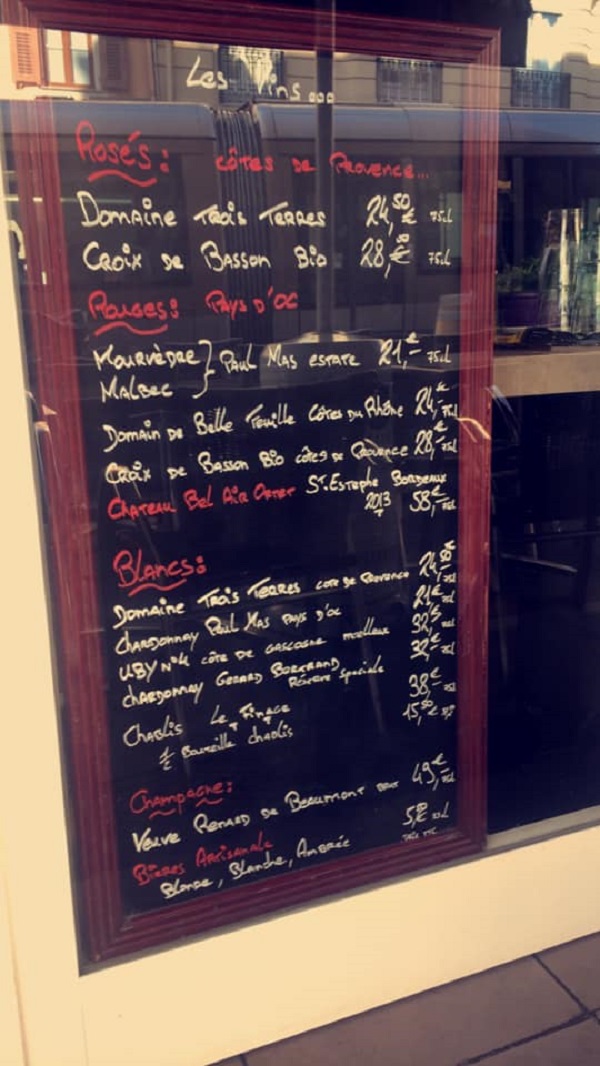 Les Vins...
Rosés: Côtes de Provence...
Domaine Trois Terres 24,50€ 75cl
Croix de Basson Bio 28,00€ 75cl
Rouges: Pays d'Oc
Mourvèdre } Paul Mas estate 21,-€ 75cl
Malbec
Domain de Belle Feuille Côtes du Rhône 24,-€ 75cl
Croix de Basson Bio côtes de Provence 28,-€ 75cl
Chateau Bel Air Ortet St. Estephe Bordeaux
2013 58,-€ 75cl
Blancs:
Domaine Trois Terres cote de Provence 24,50€ 75cl
Chardonnay Paul Mas Pays d'oc 21,-€ 75cl
UBY N°4 côte de gascogne moelleux 32,-€ 75cl
chardonnay Gerard Bertrand 32,-€ 75cl
Réserve Spéciale
Chablis Le Finage 38,-€ 75cl
½ Bouteille chablis 15,50€
Champagne:
Veuve Renard de Beaumont brut 49,-€ 75cl
Bières Artisanale 5,€ 33cl
Blonde, Blanche, Ambrée